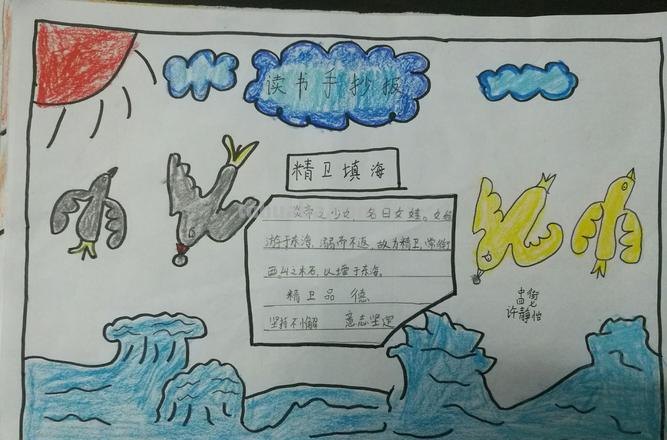 读书手抄报
精卫填海
炎帝之少女，名曰女娃。女娃
游于东海，溺而不返，故为精卫，常衔
西山之木石，以堙于东海。
精卫品德
坚持不懈 意志坚定
许静怡